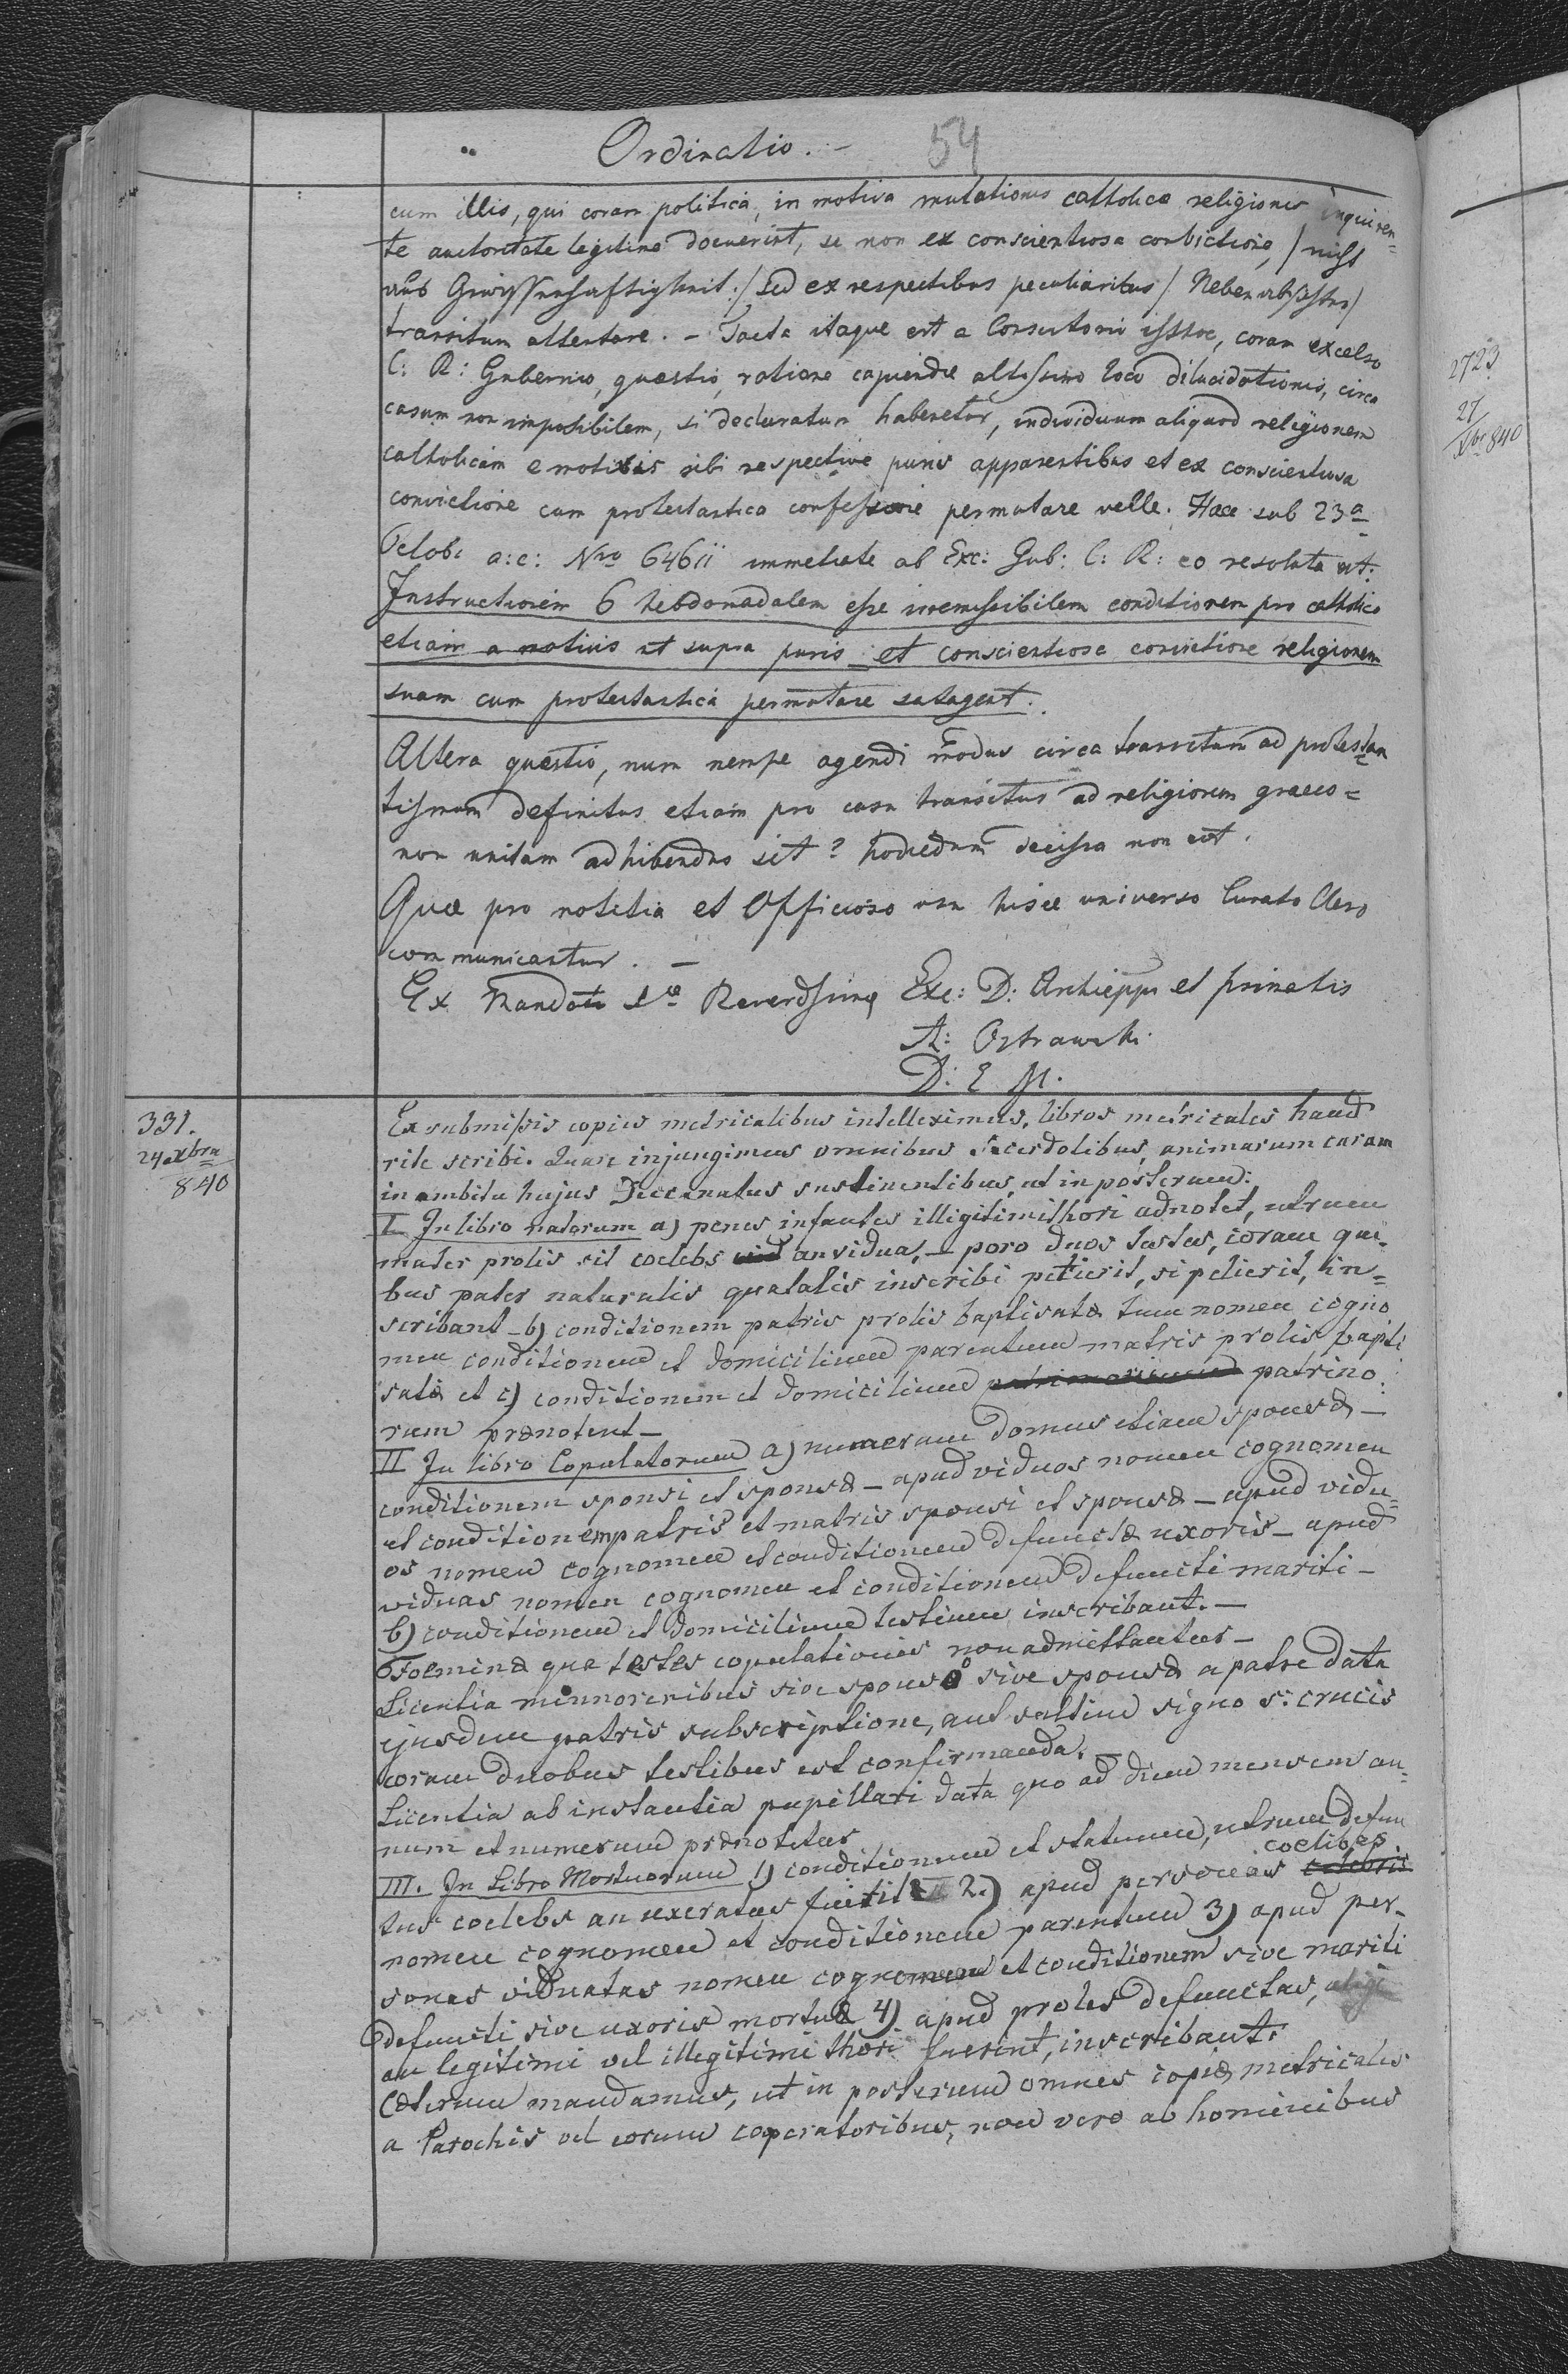 Ordinatio. — 54
cum illis, qui coram politica, in motiva mutationis catholicae religionis inquiren=
te auctoritate legitime docuerint, se non ex conscientiosa convictione, / nicht
aus Gewissenhaftigkeit./ sed ex respectibus peculiaribus / Nebenabsichten /
transitum attentare. – Facta itaque est a Consistorio isthoc, coram excelso
C: R: Gubernio, quaestio, ratione capiendae altissimo loco dilucidationis, circa
casum non impossibilem, si declaratum haberetur, individuum aliquod religionem
catholicam e motivis sibi respective puris apparentibus et ex conscientiosa
convictione cum protestantica confessione permutare velle. Haec sub 23a
Octob: a: c: Nro 64611 immediate ab Exc: Gub: C: R: eo resoluta est:
Instructionem 6 hebdomadalem esse irremissibilem conditionem pro catholico
etiam a motivis ut supra puris et conscientiosa convictione religionem
suam cum protestantica permutare satagent.
Altera quaestio, num nempe agendi modus circa transitum ad protestan
tismum definitus etiam pro casu transitus ad religionem graeco=
non unitam adhibendus sit? hodiedum decissa non est.
Quae pro notitia et Officioso usu hisce universo Curato Clero
communicantur. —
Ex Mandato Suae Reverdssimae Exc: D: Archieppi et primatis
A: Ostrawski
D: E M.
331.
24 Xbra
840
Ex submissis copiis metricalibus intelleximus, libros metricales haud
rite scribi. Quare injungimus omnibus Sacerdotibus, animarum curam
in ambitu hujus Deccanatus sustinentibus, ut in posterum:
I. In libro natorum a) penes infantes illigitimi thori adnotet, utrum
mater prolis sit coelebs an vidua, – poro duos testes, coram qui-
bus pater naturalis qua talis inscribi petierit, si petierit, in=
scribant – b) conditionem patris prolis baptisatae tum nomen cogno
men conditionem et domicilium parentum matris prolis bapti
satae et c) conditionem et domicilium patrino:
rum praenotent –
II In libro Copulatorum a) numerum domus etiam sponsae –
conditionem sponsi et sponsae – apud viduos nomen cognomen
et conditionem patris et matris sponsi et sponsae – apud vidu=
os nomen cognomen et conditionem defunctae uxoris – apud
viduas nomen cognomen et conditionem defuncti mariti –
b) conditionem et domicilium testium inscribant. —
Foeminae qua testes copulationis non admittantur –
Licentia minnorenibus sive sponso sive sponsae a patre data
ejusdem patris subscriptione, aut saltim signo s. crucis
coram duobus testibus est confirmanda. —
Licentia ab instantia pupillari data quo ad diem mensem an=
num et numerum praenotetur
III. In Libro Mortuorum 1) conditionem et statum, utrum defun
tus coelebs an uxoratus fuerit 2.) apud personas coelibes
nomen cognomen et conditionem parentum 3) apud per-
sonas viduatas nomen cognomen et conditionem sive mariti
defuncti sive uxoris mortuae 4) apud proles defunctas,
an legitimi vel illegitimi thori fuerint, inscribant.
Caeterum mandamus, ut in posterum omnes copiae metricales
a Parochis vel eorum coperatoribus, non vero ab hominibus
2723
27
Xbr 840